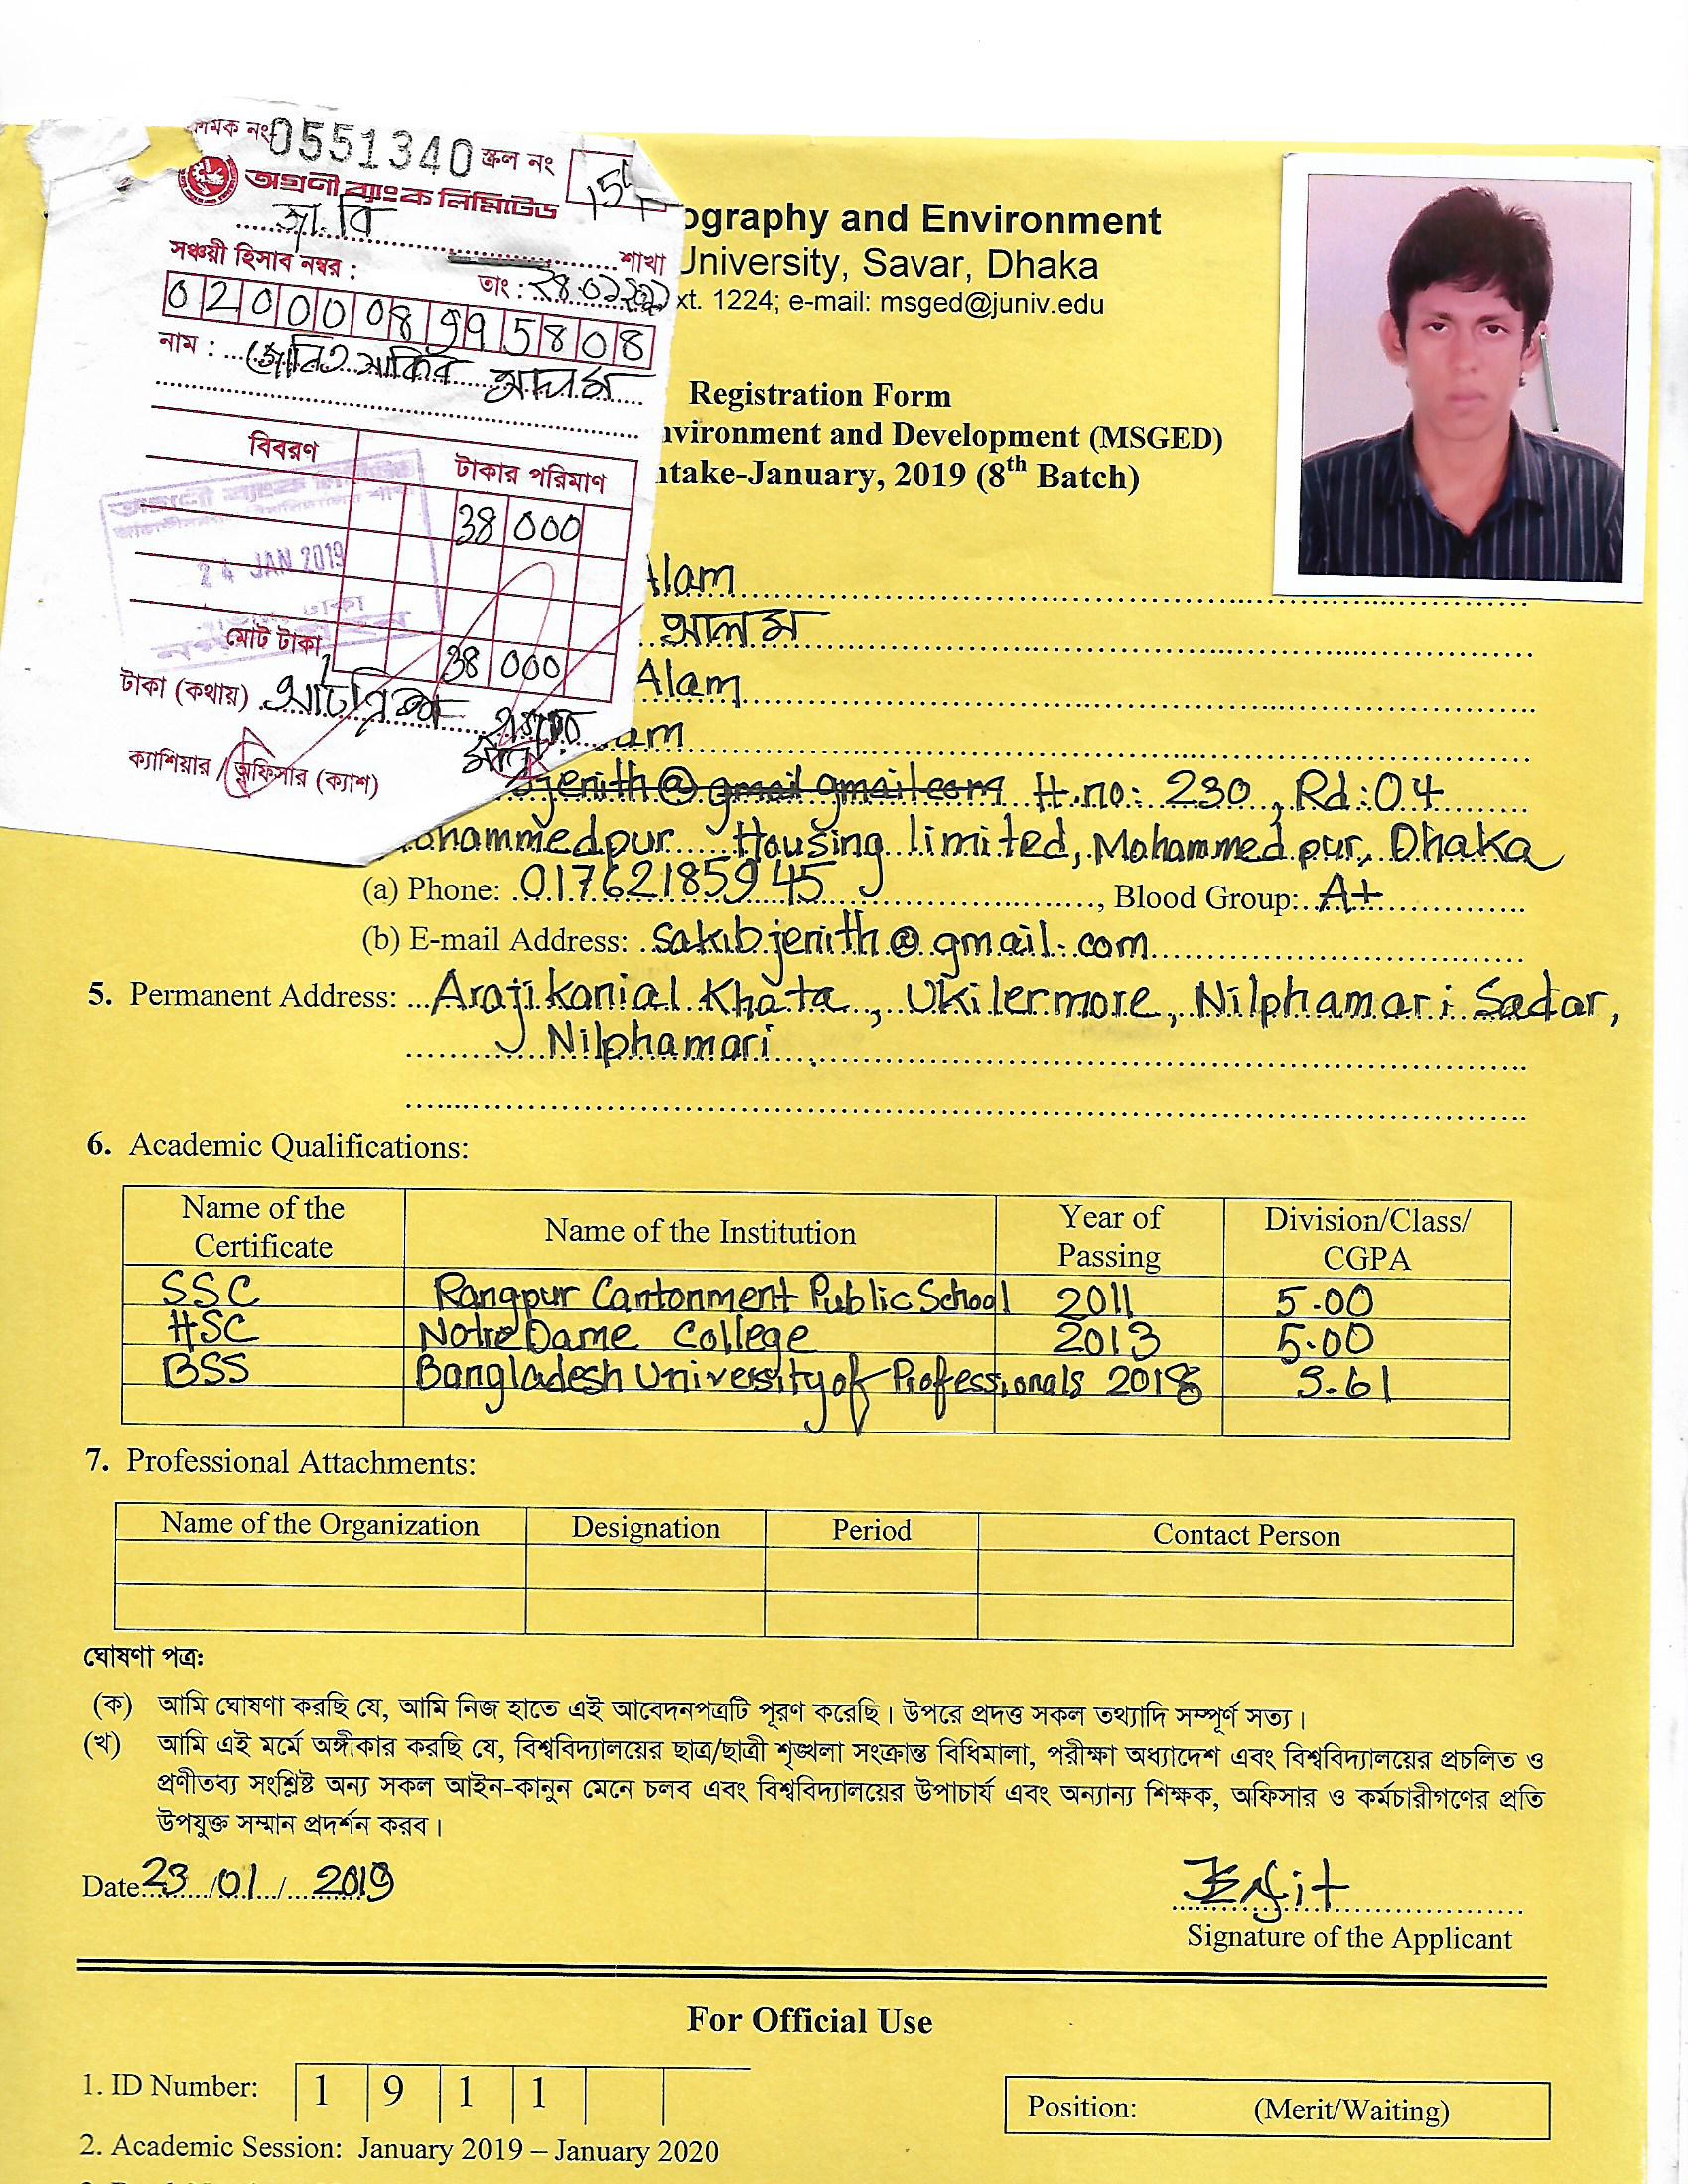 ক্রমিক নং 0551340 স্ক্রল নং
অগ্রণী ব্যাংক লিমিটেড
জা.বি শাখা
সঞ্চয়ী হিসাব নম্বর :
তাং :
0200008995808
নাম : জেনিথ সাকিব আলম
বিবরণ টাকার পরিমাণ
38 000
24 JAN 2019
ঢাকা
মোট টাকা 38 000
টাকা (কথায়) আটত্রিশ হাজার
মাত্র
ক্যাশিয়ার / অফিসার (ক্যাশ)
ography and Environment
University, Savar, Dhaka
xt. 1224; e-mail: msged@juniv.edu
Registration Form
nvironment and Development (MSGED)
ntake-January, 2019 (8th Batch)
Alam
আলম
Alam
am
jenith@gmail gmail.com H.no: 230, Rd:04
ohammedpur Housing limited, Mohammedpur, Dhaka
(a) Phone: 01762185945, Blood Group: A+
(b) E-mail Address: sakibjenith@gmail.com
5. Permanent Address: Araji kanial Khata, Ukilermore, Nilphamari Sadar,
Nilphamari
6. Academic Qualifications:
Name of the Certificate Name of the Institution Year of Passing Division/Class/CGPA
SSC Rangpur Cantonment Public School 2011 5.00
HSC Notre Dame College 2013 5.00
BSS Bangladesh University of Professionals 2018 3.61
7. Professional Attachments:
Name of the Organization Designation Period Contact Person
ঘোষণা পত্র:
(ক) আমি ঘোষণা করছি যে, আমি নিজ হাতে এই আবেদনপত্রটি পূরণ করেছি। উপরে প্রদত্ত সকল তথ্যাদি সম্পূর্ণ সত্য।
(খ) আমি এই মর্মে অঙ্গীকার করছি যে, বিশ্ববিদ্যালয়ের ছাত্র/ছাত্রী শৃঙ্খলা সংক্রান্ত বিধিমালা, পরীক্ষা অধ্যাদেশ এবং বিশ্ববিদ্যালয়ের প্রচলিত ও
প্রণীতব্য সংশ্লিষ্ট অন্য সকল আইন-কানুন মেনে চলব এবং বিশ্ববিদ্যালয়ের উপাচার্য এবং অন্যান্য শিক্ষক, অফিসার ও কর্মচারীগণের প্রতি
উপযুক্ত সম্মান প্রদর্শন করব।
Date 23/01/2019
Signature of the Applicant
For Official Use
1. ID Number: 1 9 1 1
Position: (Merit/Waiting)
2. Academic Session: January 2019 – January 2020